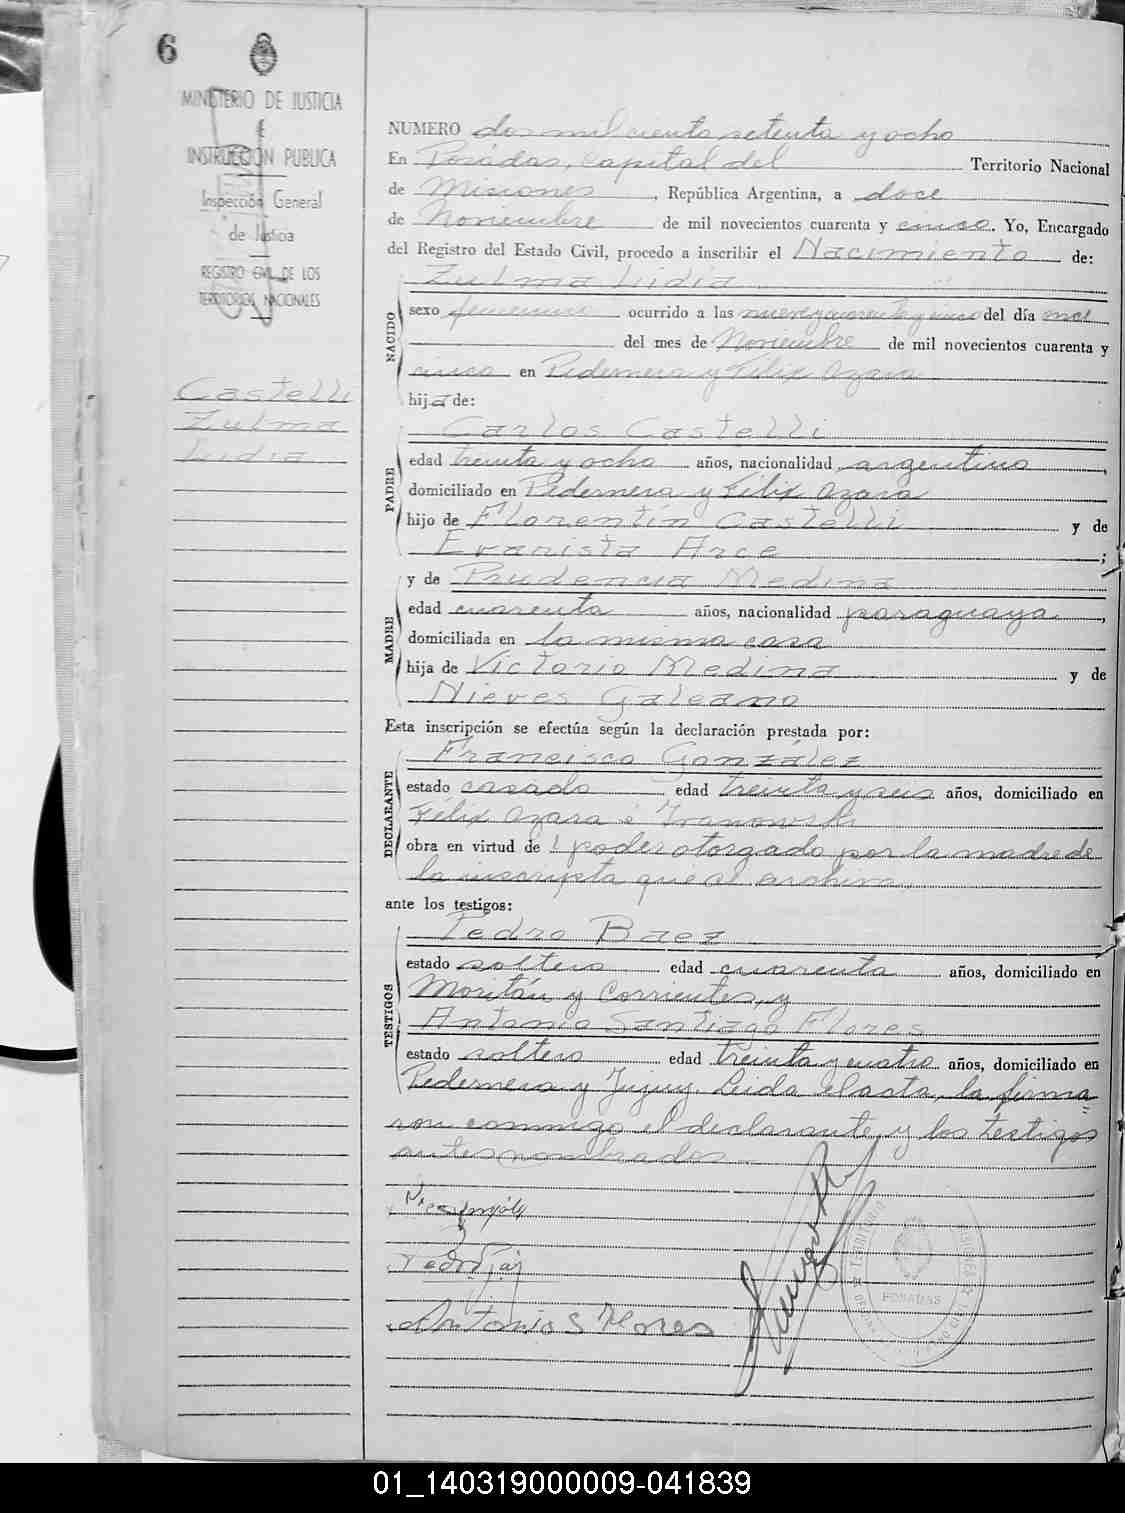 6
MINISTERIO DE JUSTICIA
E
INSTRUCCIÓN PUBLICA
Inspección General
de Justicia
REGISTRO CIVIL DE LOS
TERRITORIOS NACIONALES
Castelli
Zulma
Lidia
NUMERO dos mil ciento setenta y ocho
En Posadas, Capital del Territorio Nacional
de Misiones, República Argentina, a doce
de Noviembre de mil novecientos cuarenta y cinco. Yo, Encargado
del Registro del Estado Civil, procedo a inscribir el Nacimiento de:
Zulma Lidia
NACIDO
sexo femenino ocurrido a las nueve y cuarenta y cinco del día once
del mes de Noviembre de mil novecientos cuarenta y
cinco en Pedernera y Félix Azara
hija de:
PADRE
Carlos Castelli
edad treinta y ocho años, nacionalidad argentino,
domiciliado en Pedernera y Félix Azara
hijo de Florentín Castelli y de
Evarista Arce;
MADRE
y de Prudencia Medina
edad cuarenta años, nacionalidad paraguaya,
domiciliada en la misma casa
hija de Victorio Medina y de
Nieves Galeano
Esta inscripción se efectúa según la declaración prestada por:
DECLARANTE
Francisco González
estado casado edad treinta y seis años, domiciliado en
Félix Azara é Ivanowski
obra en virtud de l poder otorgado por la madre de
la inscripta que se archiva,
ante los testigos:
TESTIGOS
Pedro Baez
estado soltero edad cuarenta años, domiciliado en
Moritán y Corrientes, y
Antonio Santiago Flores
estado soltero edad treinta y cuatro años, domiciliado en
Pedernera y Jujuy. Leida el acta, la firma=
ron conmigo el declarante y los testigos
antes nombrados.
Antonio S Flores
POSADAS
01_140319000009-041839